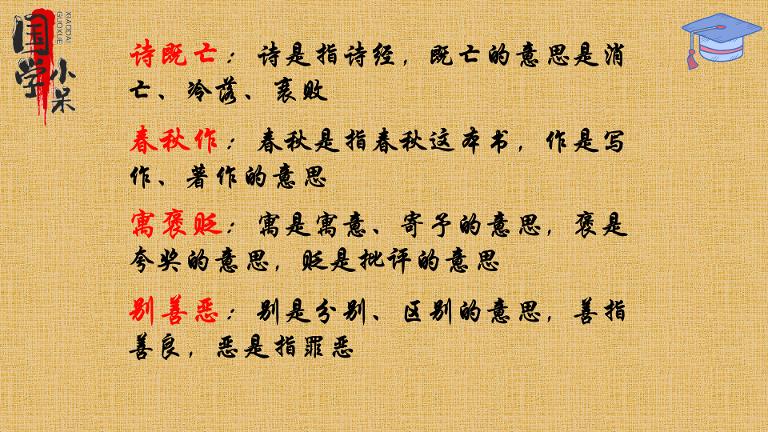 国学
小呆
XIAODAI
GUOXUE
诗既亡：诗是指诗经，既亡的意思是消
亡、冷落、衰败
春秋作：春秋是指春秋这本书，作是写
作、著作的意思
寓褒贬：寓是寓意、寄予的意思，褒是
夸奖的意思，贬是批评的意思
别善恶：别是分别、区别的意思，善指
善良，恶是指罪恶